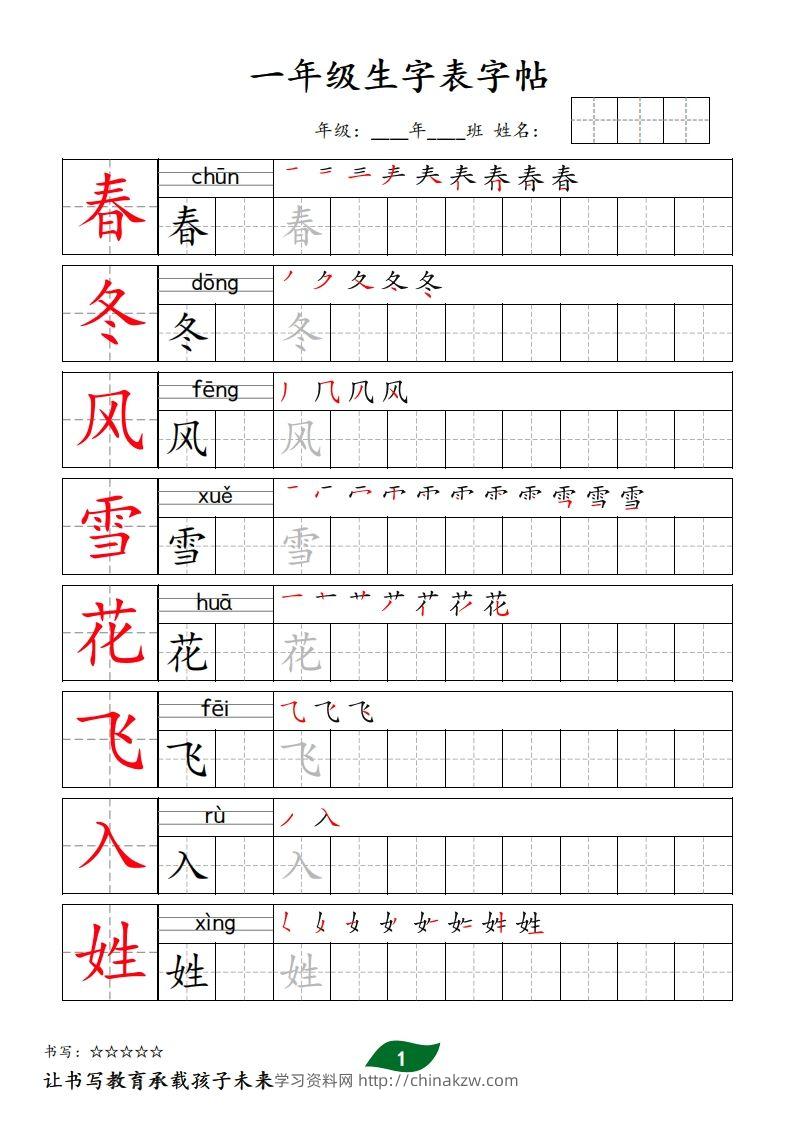 一年级生字表字帖
年级：____年____班 姓名：
春 chūn
春 春
冬 dōng
冬 冬
风 fēng
风 风
雪 xuě
雪 雪
花 huā
花 花
飞 fēi
飞 飞
入 rù
入 入
姓 xìng
姓 姓
书写：☆☆☆☆☆
1
让书写教育承载孩子未来学习资料网 http://chinakzw.com